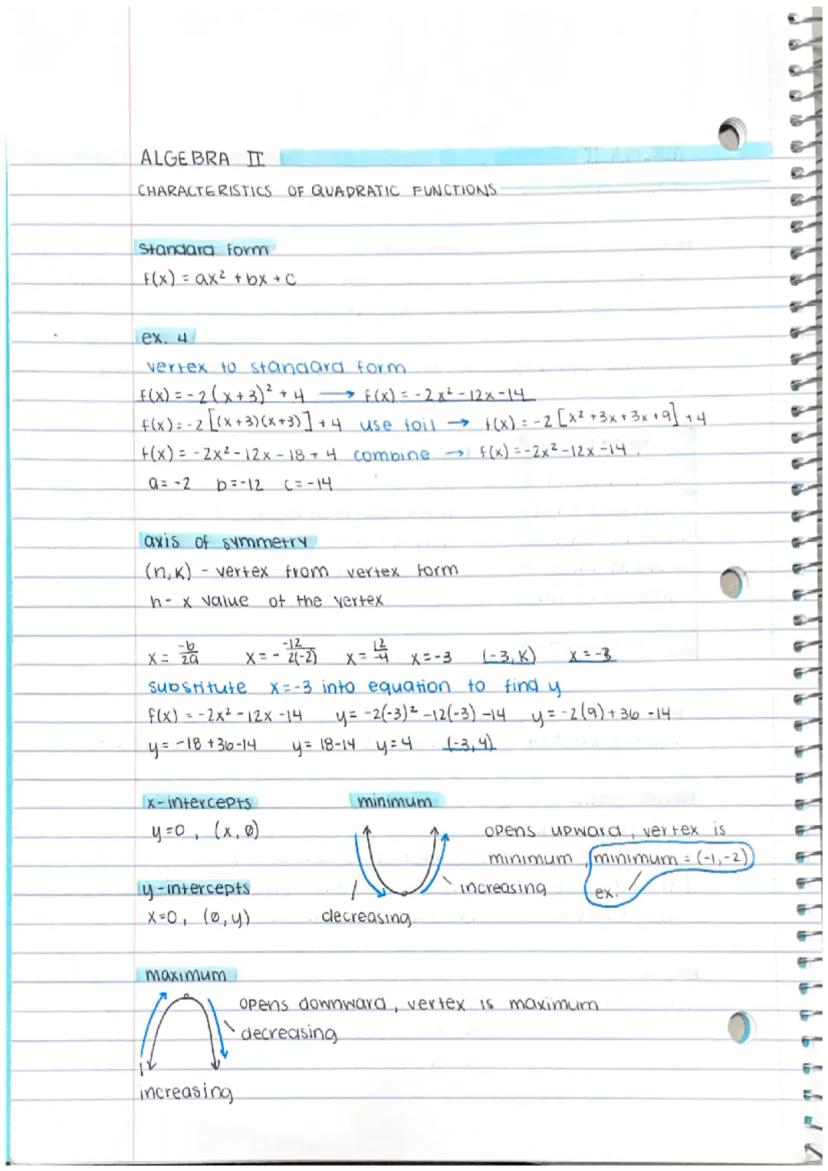 ALGEBRA II
CHARACTERISTICS OF QUADRATIC FUNCTIONS
standard form
f(x) = ax² + bx + c
ex. 4
vertex to standard form
f(x) = -2(x+3)² + 4 → f(x) = -2x² - 12x - 14
f(x) = -2[(x+3)(x+3)] + 4 use foil → f(x) = -2[x² + 3x + 3x + 9] + 4
f(x) = -2x² - 12x - 18 + 4 combine → f(x) = -2x² - 12x - 14.
a = -2 b = -12 c = -14
axis of symmetry
(h, k) - vertex from vertex form
h - x value of the vertex
x = -b/2a x = - -12/2(-2) x = 12/-4 x = -3 (-3, k) x = -3
substitute x = -3 into equation to find y
f(x) = -2x² - 12x - 14 y = -2(-3)² - 12(-3) - 14 y = -2(9) + 36 - 14
y = -18 + 36 - 14 y = 18 - 14 y = 4 (-3, 4)
x-intercepts
y = 0, (x, 0)
y-intercepts
x = 0, (0, y)
minimum
opens upward, vertex is
minimum, minimum = (-1, -2)
ex.
increasing
decreasing
maximum
opens downward, vertex is maximum
decreasing
increasing